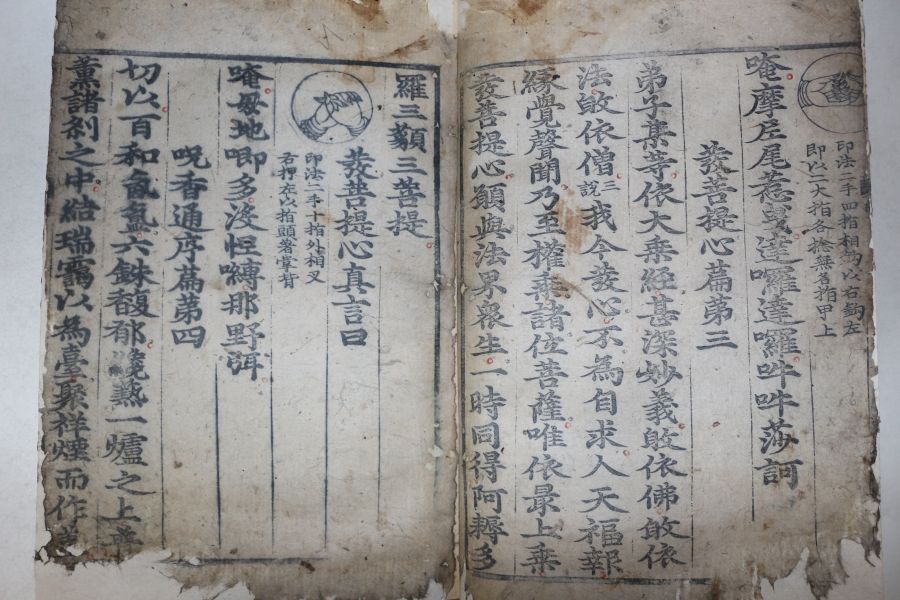 印法二手四指相鈎以右鈎左
即以二大指各捻無名指甲上
唵摩尼尾惹曳達囉達囉吽吽莎訶
發菩提心篇第三
弟子某等依大乘經甚深妙義敀依佛敀依
法敀依僧三說我今發心不為自求人天福報
緣覺聲聞乃至權乘諸位菩薩唯依最上乘
發菩提心願與法界衆生一時同得阿耨多
羅三藐三菩提
發菩提心真言曰
印法二手十指外相叉
右押左以指頭着掌背
唵母地唧多没怛嚩那野弭
呪香通序篇第四
切以百和氤氳六銖馥郁纔爇一爐之上
薰諸刹之中結瑞靄以為臺聚祥煙而作